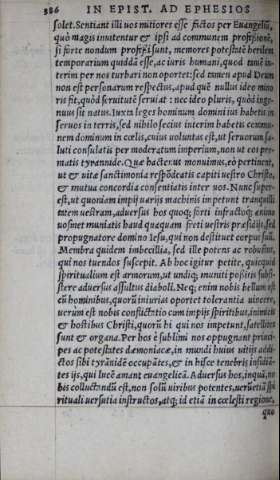 386 IN EPIST. AD EPHESIOS
solet. Sentiant illi uos mitiores esse factos per Euangeliũ,
quò magis inuitentur & ipsi ad communem professionẽ,
si forte nondum professi sunt, memores potestatẽ herilem
temporarium quiddã esse, ac iuris humani, quod tunẽ in-
terim per nos turbari non oportet: sed tamen apud Deum
non est personarum respectus, apud quẽ nullus ideo mino
ris fit, quòd seruitutẽ seruiat: nec ideo pluris, quòd inge-
nuus sit natus. Iuxta leges hominum domini ius habetis in
seruos in terris, sed nihilo secius interim habetis commu-
nem dominum in cœlis, cuius uoluntas est, ut seruorum sa-
luti consulatis per moderatum imperium, non ut eos pre-
matis tyrannide. Quæ hactenus monuimus, eò pertinent,
ut & uitæ sanctimonia respõdeatis capiti uestro Christo,
& mutua concordia consentiatis inter uos. Nunc super-
est, ut quoniam impij uarijs machinis impetunt tranquilli
tatem uestram, aduersus hos quoq; forti infractoq; animo
uosmet muniatis haud quaquam freti uestris præsidijs, sed
propugnatore domino Iesu, qui non destituet corpus suũ.
Membra quidem imbecillia, sed ille potens ac robustus,
qui nos tuendos suscepit. Ab hoc igitur petite, quicquid
spiritualium est armorum, ut undiq; muniti possitis subsi-
stere aduersus assultus diaboli. Neq; enim nobis bellum est
cũ hominibus, quorũ iniurias oportet tolerantia uincere,
uerum est nobis conflictatio cum impijs spiritibus, inimicis
& hostibus Christi, quorũ hi qui nos impetunt, satellites
sunt & organa. Per hos è sublimi nos oppugnant princi-
pes ac potestates dæmoniacæ, in mundi huius uitijs addi-
ctos sibi tyrãnidẽ occupãtes, & in hisce tenebris insaniẽ-
tes ijs, qui lucẽ amant euangelicã. Aduersus hos, inquã, no
bis colluctandũ est, non solũ uiribus potentes, uerũetiã spi
rituali uersutia instructos, atq; id etiã in cœlesti regione,
quo